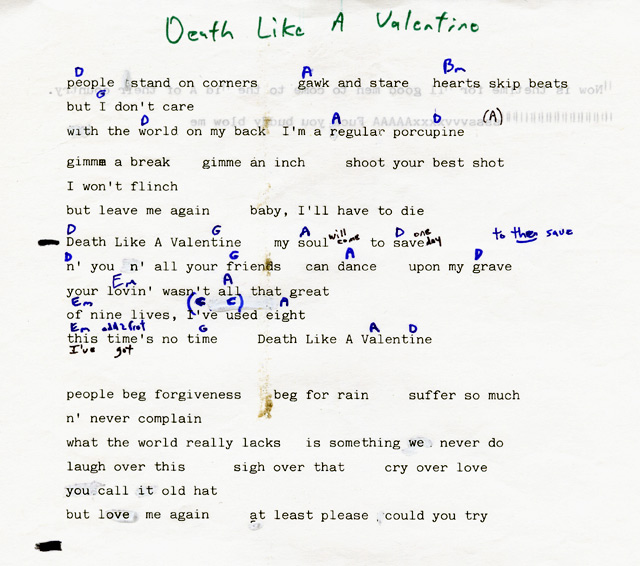 Death Like A Valentine
D A Bm
people stand on corners gawk and stare hearts skip beats
G
but I don't care
D A D (A)
with the world on my back I'm a regular porcupine
gimme a break gimme an inch shoot your best shot
I won't flinch
but leave me again baby, I'll have to die
D G A will come D one day to then save
Death Like A Valentine my soul to save
D G A D
n' you n' all your friends can dance upon my grave
Em A
your lovin' wasn't all that great
Em A
of nine lives, I've used eight
Em add 2 fret G A D
this time's no time Death Like A Valentine
I've got
people beg forgiveness beg for rain suffer so much
n' never complain
what the world really lacks is something we never do
laugh over this sigh over that cry over love
you call it old hat
but love me again at least please could you try